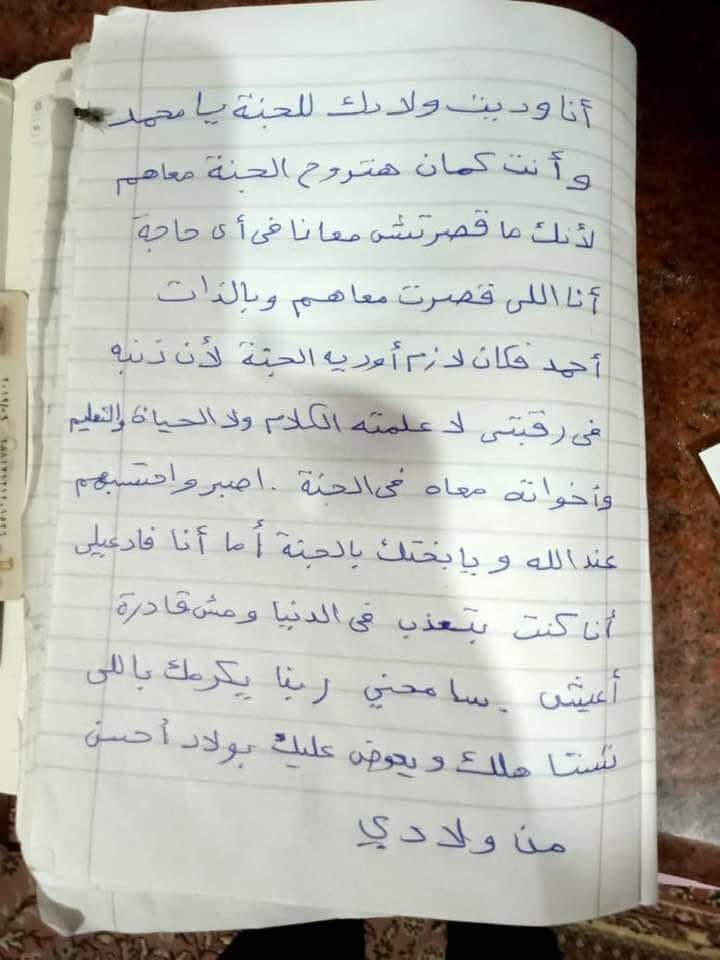 أنا وديت ولادك للجنة يا محمد
وأنت كمان هتروح الجنة معاهم
لأنك ما قصرتش معانا فى أى حاجة
أنا اللى قصرت معاهم وبالذات
أحمد فكان لازم أوديه الجنة لأن ذنبه
فى رقبتى لا علمته الكلام ولا الحياة والتعليم
وأخواته معاه فى الجنة . اصبر واحتسبهم
عند الله ويابختك بالجنة أما أنا فادعيلى
أنا كنت بتعذب فى الدنيا ومش قادرة
أعيش . سامحني ربنا يكرمك باللى
تستاهلك ويعوض عليك بولاد أحسن
من ولادي